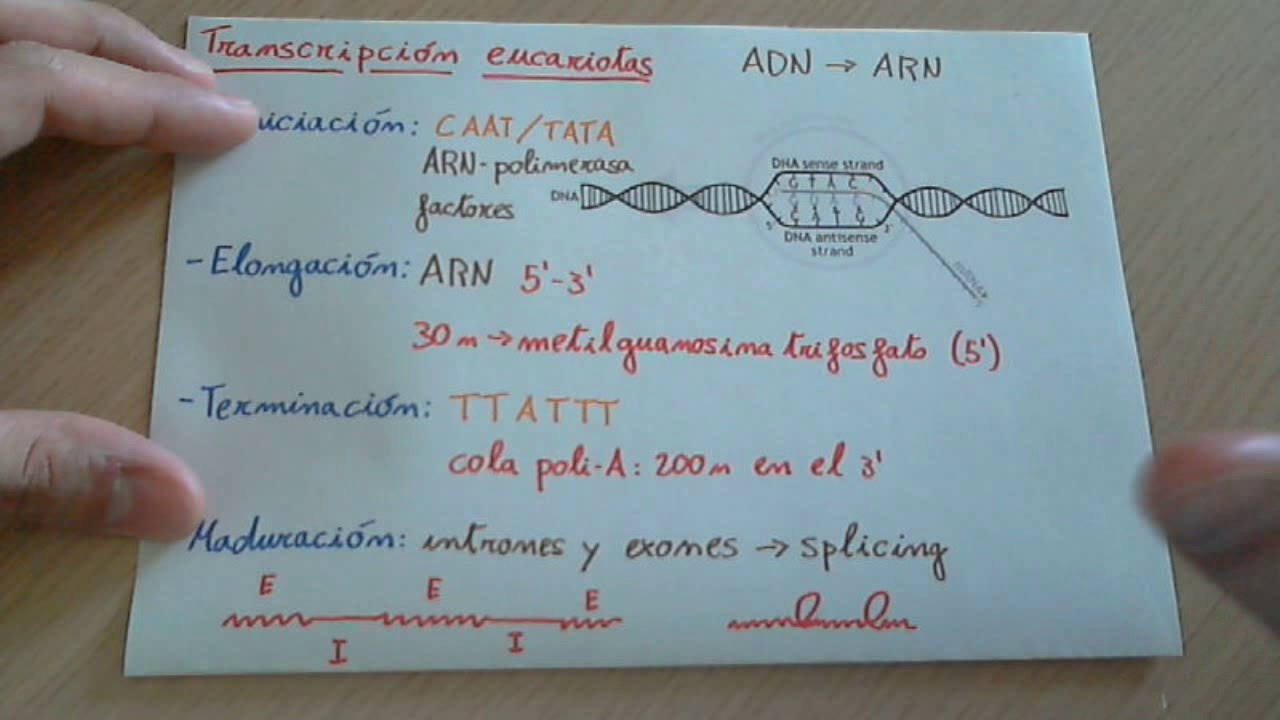 Transcripción eucariotas ADN → ARN
niciación: CAAT/TATA
ARN-polimerasa
factores
DNA
DNA sense strand
G T A C
5' 3'
DNA antisense
strand
-Elongación: ARN 5'-3'
30 n → metilguanosina trifosfato (5')
-Terminación: TTATTT
cola poli-A: 200 n en el 3'
Maduración: intrones y exones → splicing
E E E
I I